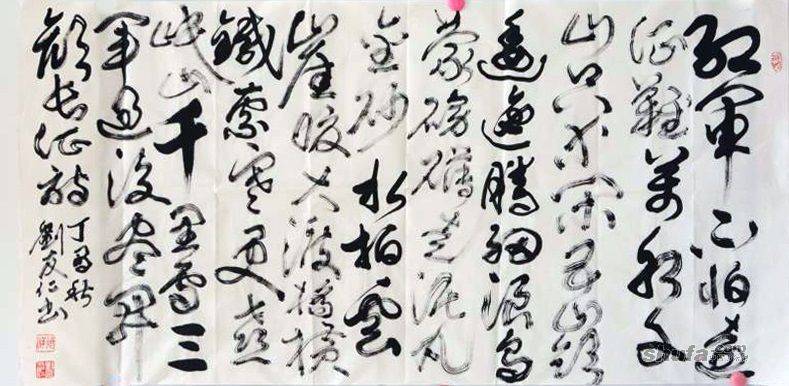 红軍不怕遠
征難萬水千
山只等闲五嶺
逶迤騰細浪烏
蒙磅礴走泥丸
金砂水拍雲
崖暖大渡橋橫
鐵索寒更喜
岷山千里雪三
軍過後盡開
顏長征詩
丁酉秋
劉友仁书